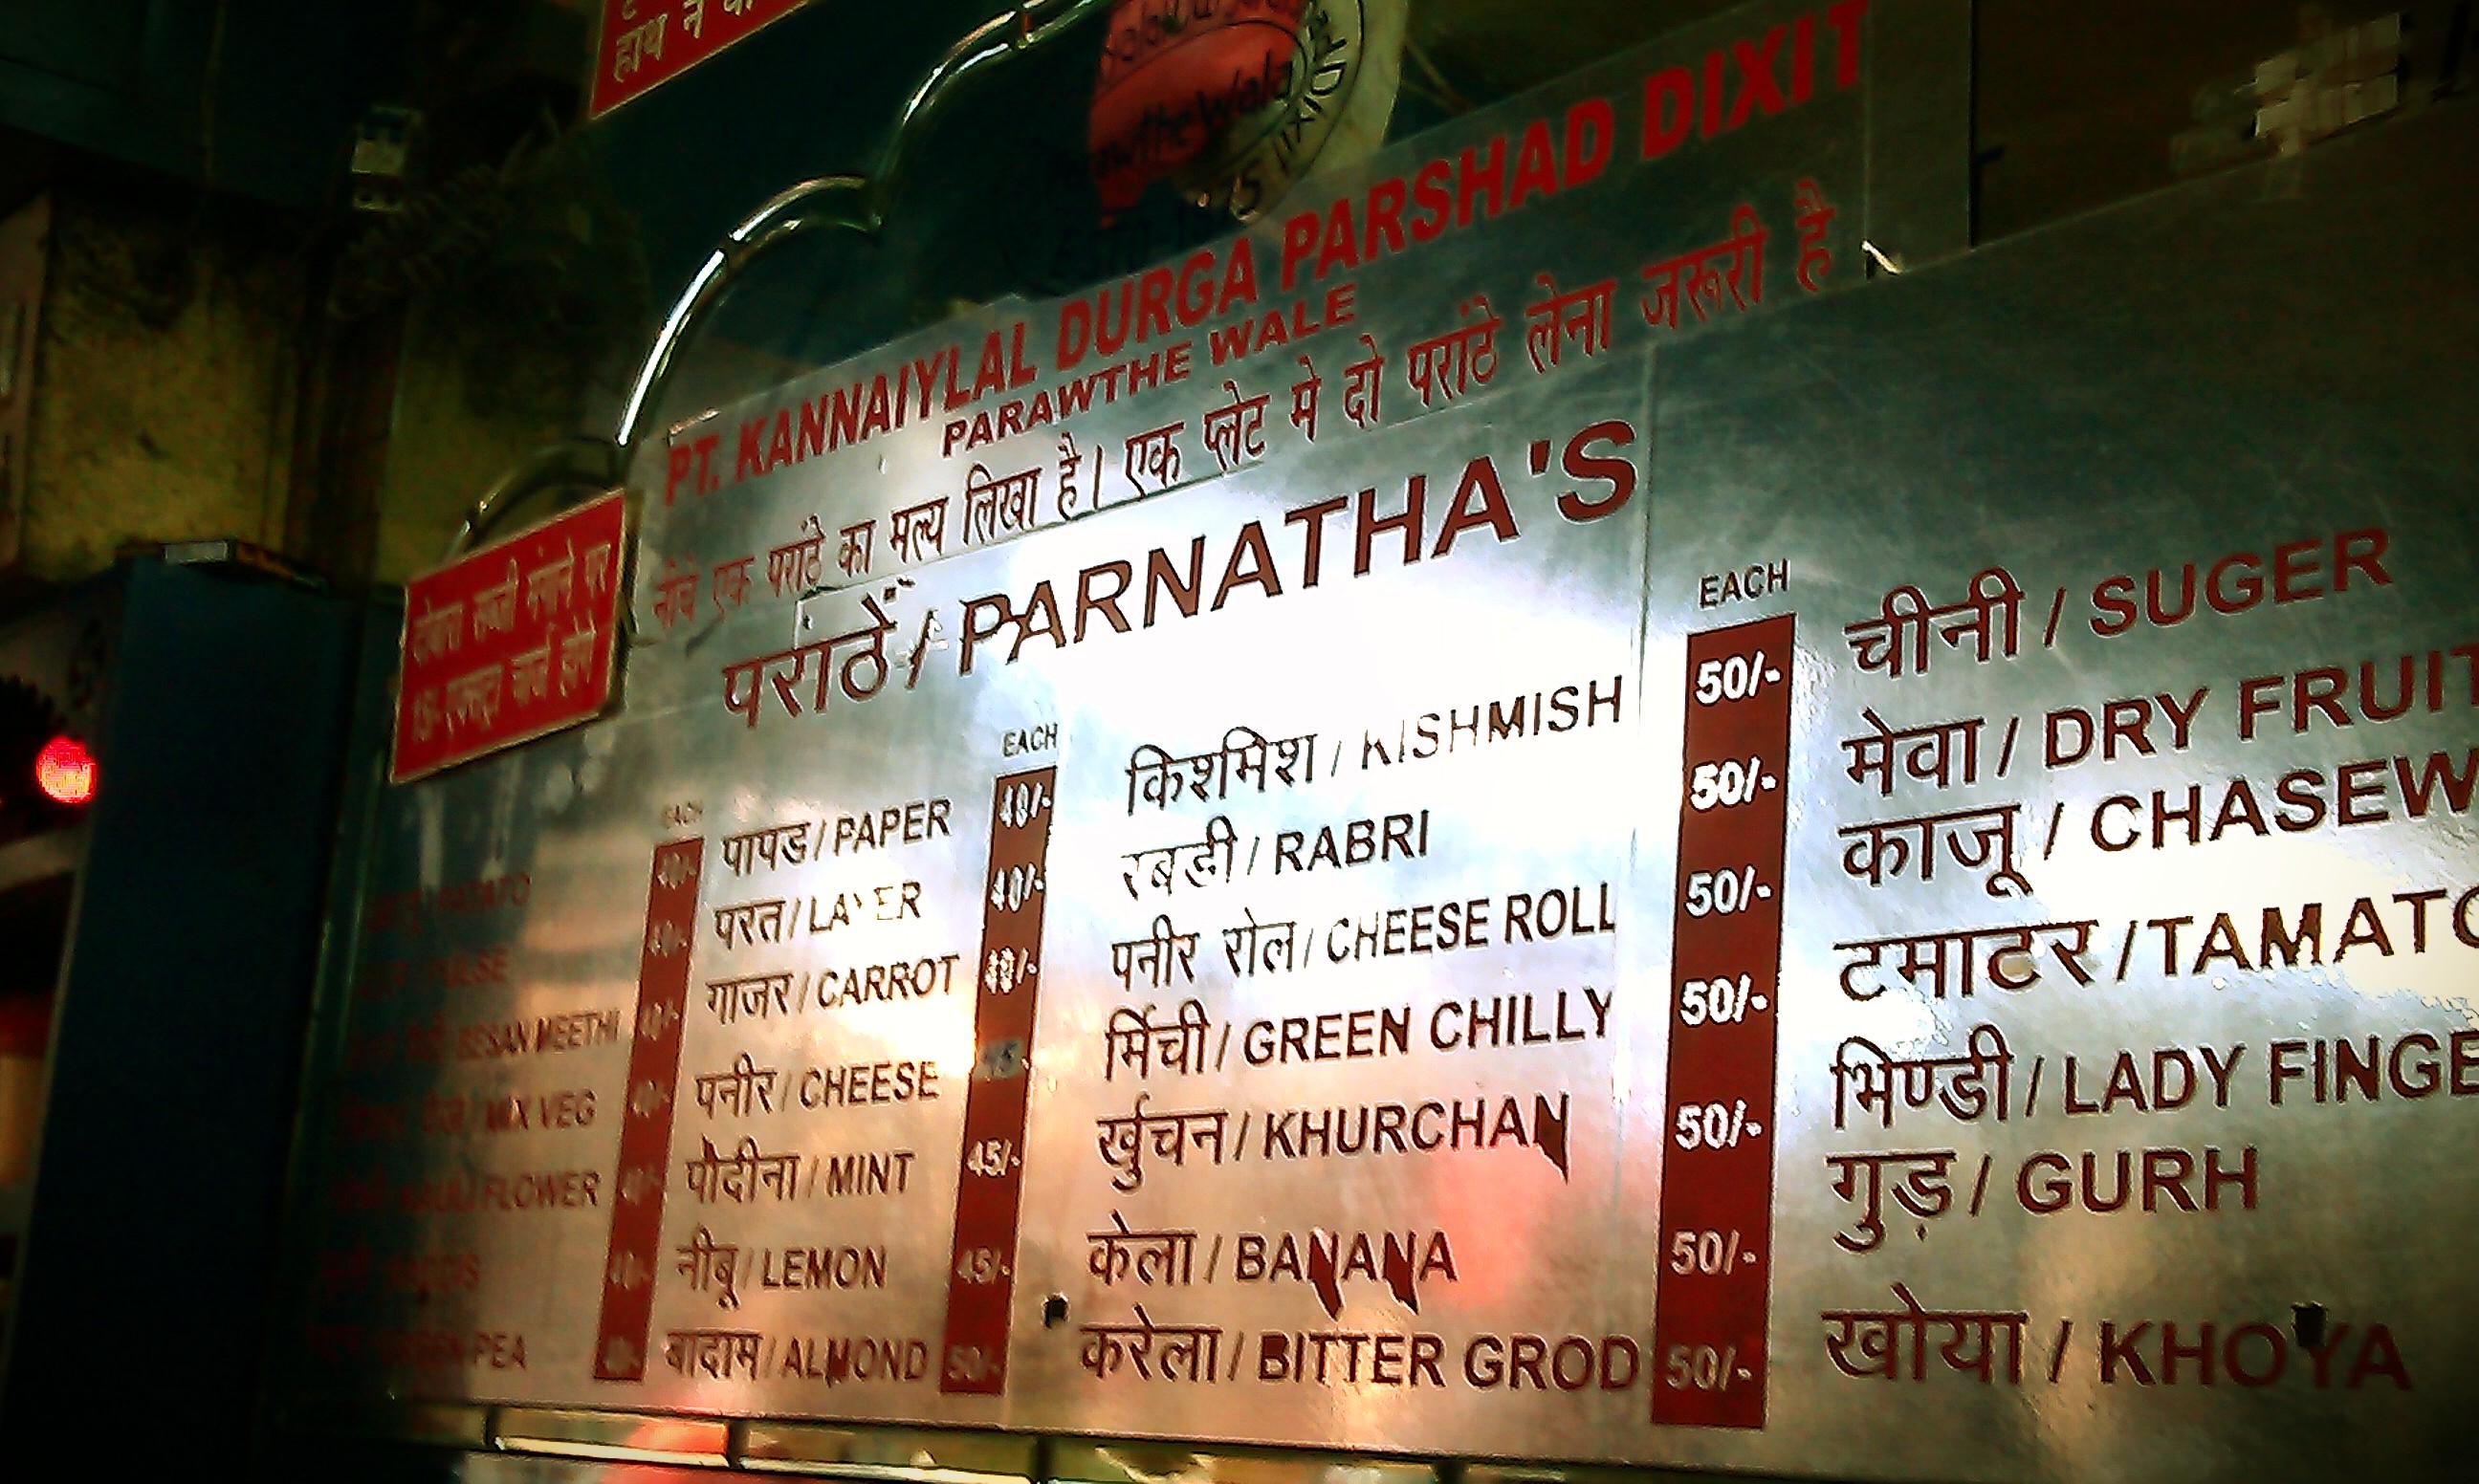 हाथ न
PT. KANNAIYLAL DURGA PARSHAD DIXIT
PARAWTHE WALE
नीचे एक परांठे का मल्य लिखा है। एक प्लेट मे दो परांठे लेना जरूरी है
परांठें / PARNATHA'S
सब्जी पर
EACH
40/-
40/-
BESAN MEETHI 40/-
MIX VEG 40/-
FLOWER 40/-
40/-
PEA 40/-
EACH
पापड / PAPER 40/-
परत / LAYER 40/-
गाजर / CARROT 40/-
पनीर / CHEESE 45
पौदीना / MINT 45/-
नीबू / LEMON 45/-
बादाम / ALMOND 50/-
EACH
किशमिश / KISHMISH 50/-
रबडी / RABRI 50/-
पनीर रोल / CHEESE ROLL 50/-
मिंची / GREEN CHILLY 50/-
र्खुचन / KHURCHAN 50/-
केला / BANANA 50/-
करेला / BITTER GROD 50/-
चीनी / SUGER
मेवा / DRY FRUIT
काजू / CHASEW
टमाटर / TAMATO
भिण्डी / LADY FINGE
गुड़ / GURH
खोया / KHOYA